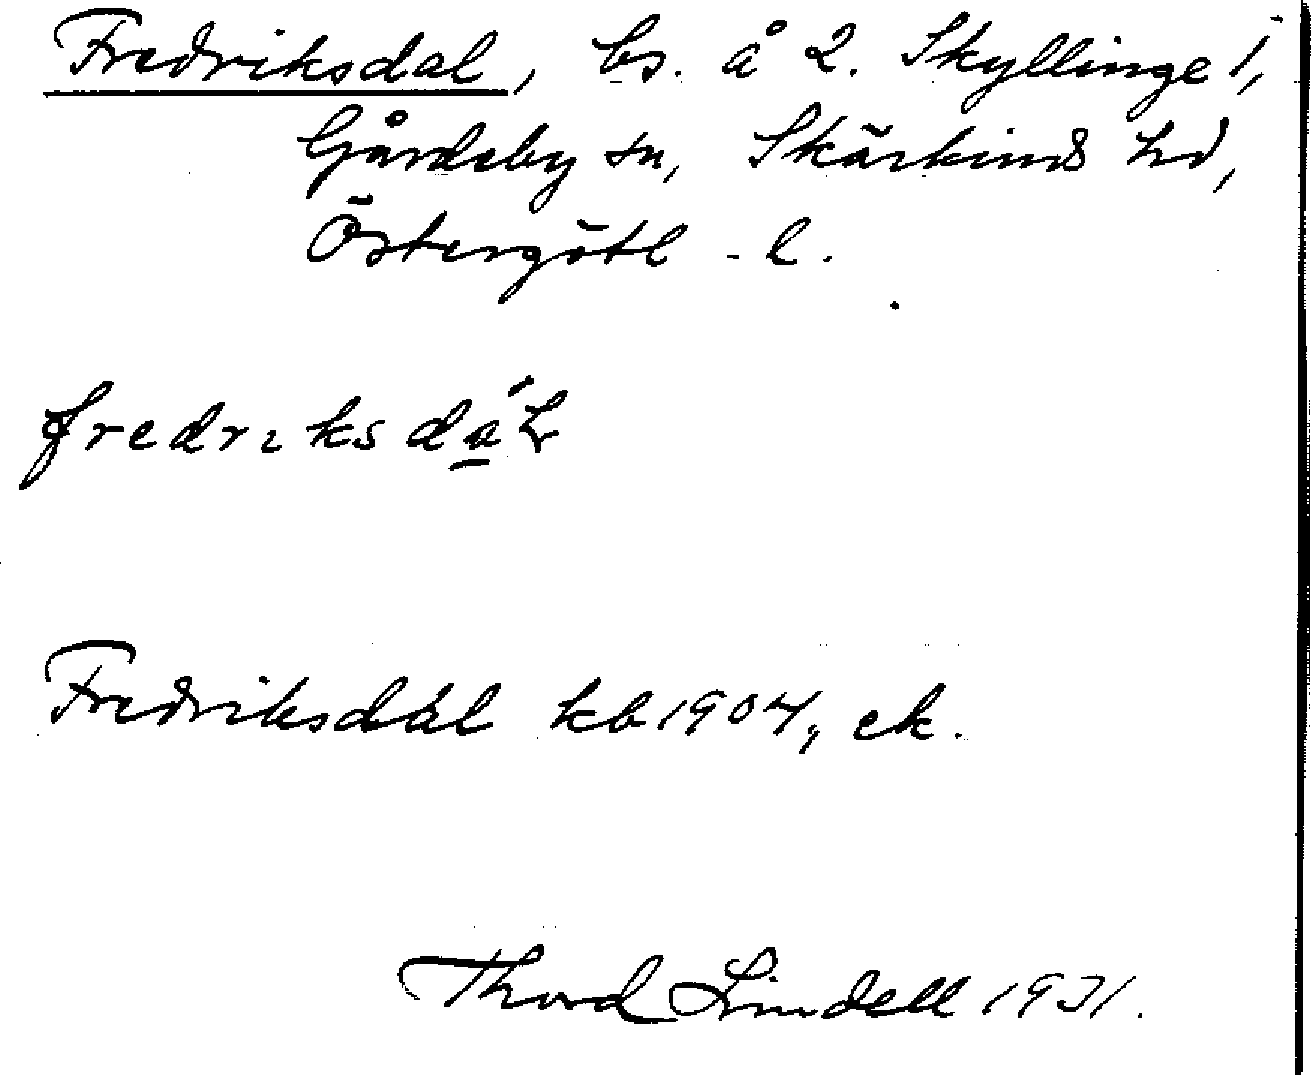 Fredriksdal, bs. å 2. Skyllinge 1,
Gårdeby sn, Skärkinds hd,
Östergötl - l.
fredrɩksdá̱ʟ
Fredriksdal kb 1904, ek.
Thord Lindell 1931.